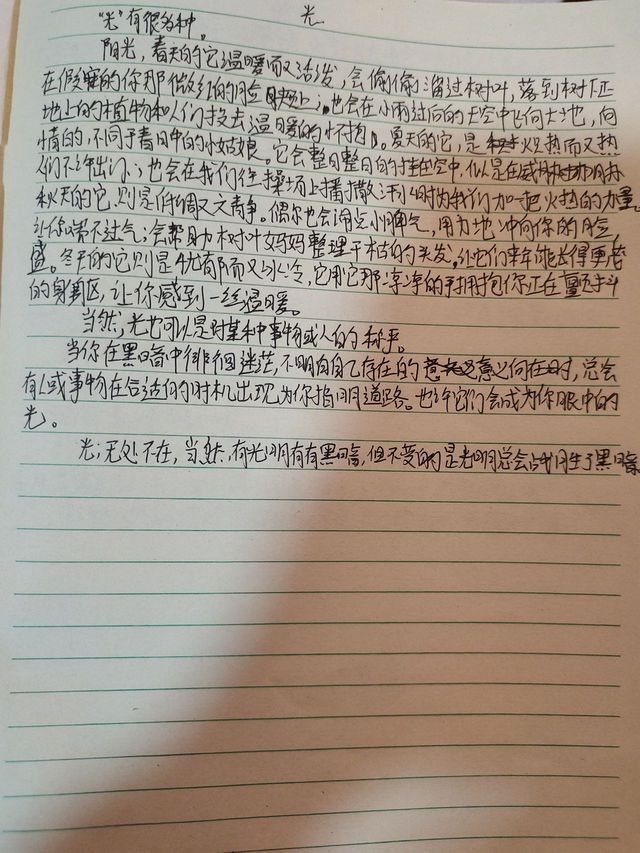 光
“光”有很多种。
阳光,春天的它温暖而又活泼,会偷偷溜过树叶,落到树下正
在假寐的你那微红的脸颊上;也会在小雨过后的天空中飞向大地,向
地上的植物和人们投去温暖的怀抱。夏天的它,是火热而又热
情的,不同于春日中的小姑娘。它会整日整日的挂在空中,似是在威胁
人们不许出门;也会在我们往操场上播撒汗水时为我们加一把火热的力量。
秋天的它,则是低调又文静。偶尔也会闹点小脾气,用力地冲向你的脸,
让你喘不过气;会帮助树叶妈妈整理干枯的头发,让它们来年能长得更茂
盛。冬天的它则是忧郁而又冰冷,它用它那凉凉的手拥抱你正在
的身躯,让你感到一丝温暖。
当然,光也可以是对某种事物或人的称乎。
当你在黑暗中徘徊迷茫,不明白自己存在的意义何在时,总会
有人或事物在合适的时机出现为你指明道路。也许它们会成为你眼中的
光。
光;无处不在,当然,有光明有有黑暗,但不变的是光明总会战胜了黑暗